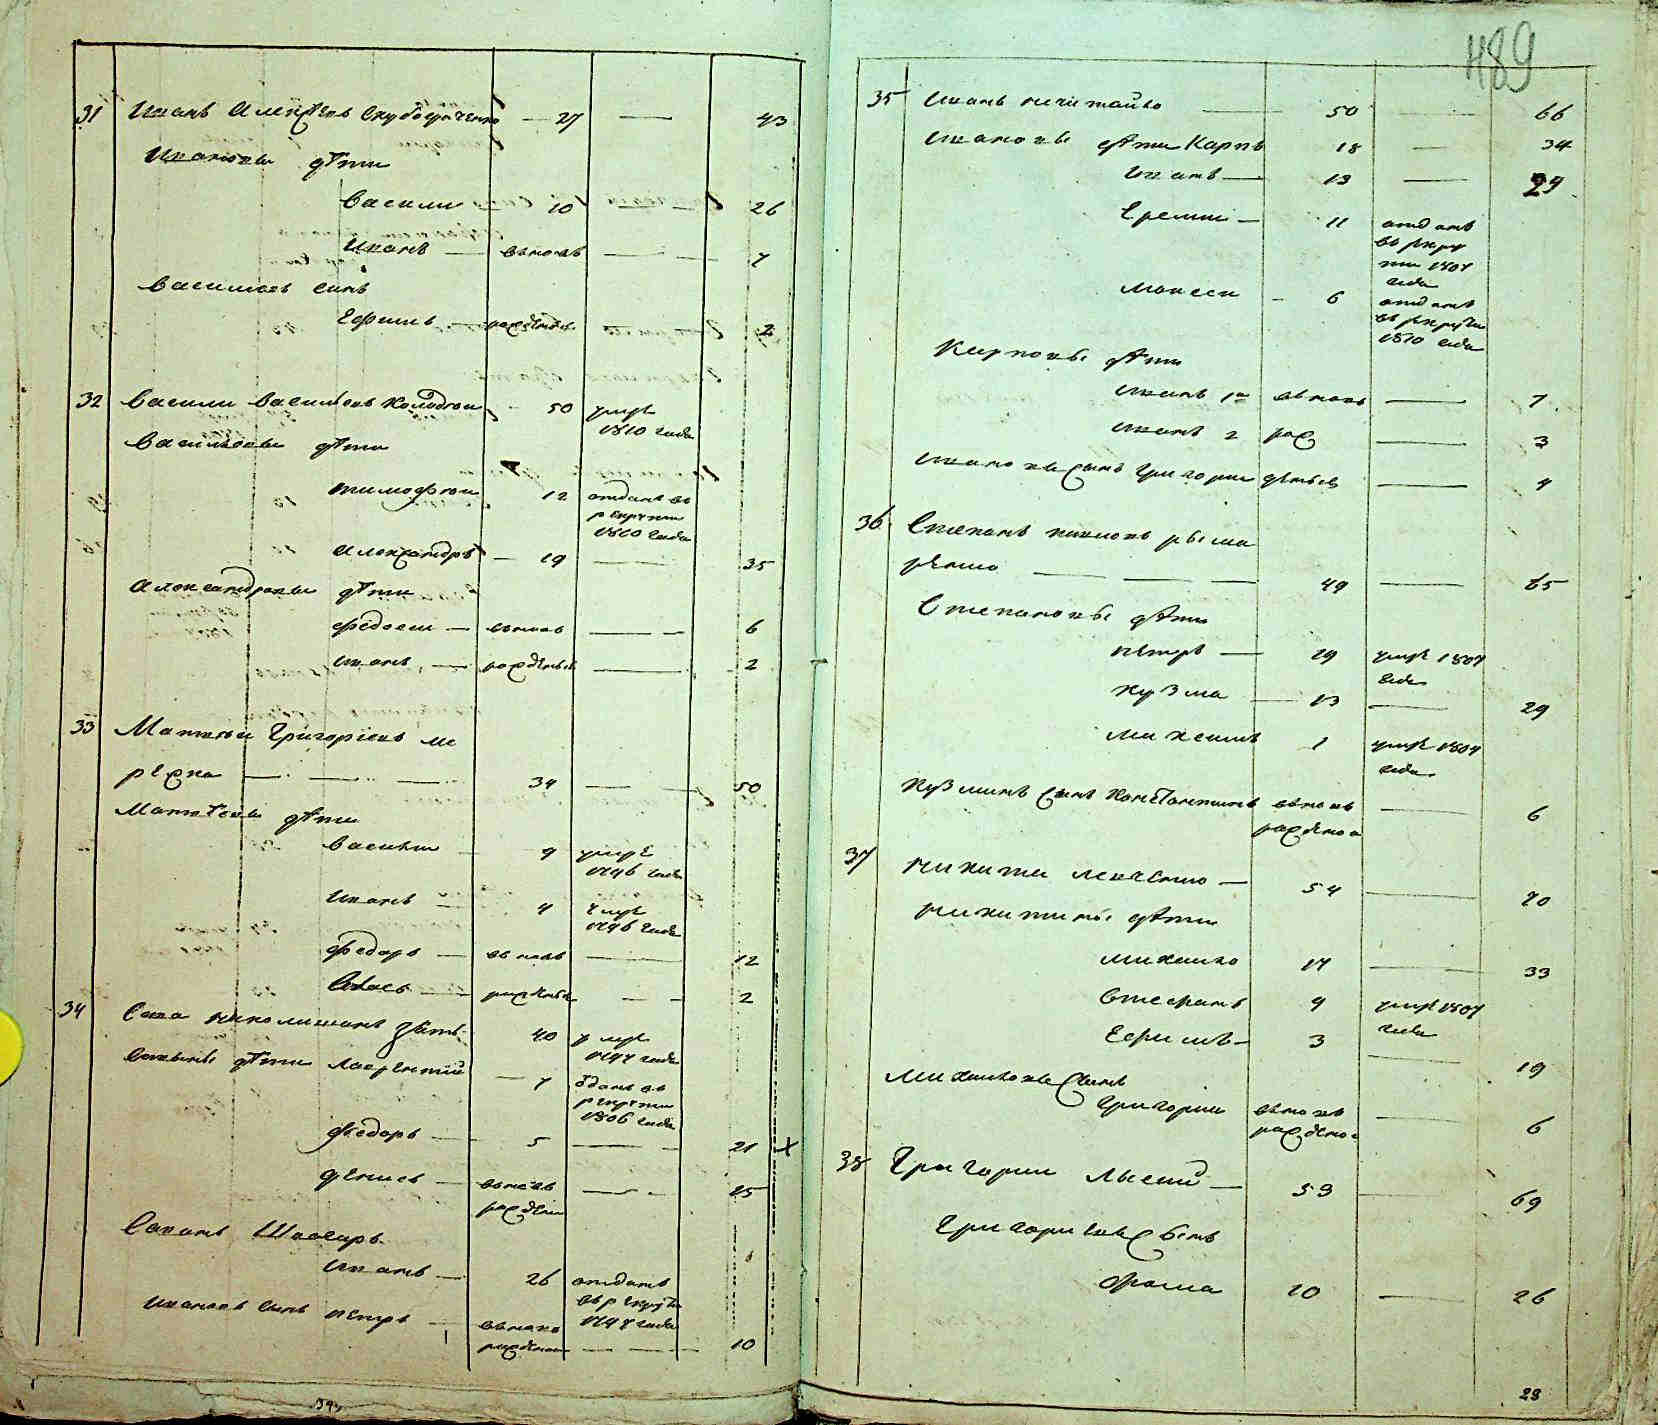 31 Иванъ Алексѣевъ — 27 — 43
Ивановы дѣти
Василий 10 — 26
Иванъ — вновь — 7
Васильевъ синъ
Ефимъ — рожденъ — 2
32 Василий Васильевъ — 50 умре
1810 года
Васильевы дѣти
Тимофей 12 отданъ въ
рекрути
1810 года
Александръ — 19 — 35
Александровы дѣти
Федосей — вновь — 6
Иванъ — рожденъ — 2
33 Матвей Григорiевъ ме
режка — 34 — 50
Матвѣевы дѣти
Василий 9 умре
1796 года
Иванъ 4 умре
1796 года
Федоръ — вновь — 12
Власъ — рожденъ — 2
34 Сава зять 40 умре
1797 года
Савины дѣти Лаврентий — 7 одданъ въ
рекрути
1806 года
Федоръ — 5 — 21 х
Денисъ — вновь — 15
рожден
Савинъ Швагаръ
Иванъ — 26 отданъ
въ рекрути
1797 года
Ивановъ синъ Петръ — вновь
рожден — 10
393
489
35 Иванъ Нечитайло — 50 — 66
Ивановы дѣти Карпъ 18 — 34
Иванъ — 13 — 29
Еремий — 11 отданъ
въ рекру
ти 1807
года
Мойсей — 6 отданъ
въ рекрути
1810 года
Карповы дѣти
Иванъ 1й вновь — 7
Иванъ 2 рож — 3
Ивановъ сынъ Григорий — 4
36 Степанъ Рыма
ренко — 49 — 65
Степановы дѣти
Петръ — 19 умре 1807
года
Кузма — 13 — 29
Михаилъ 1 умре 1807
года
Кузминъ сынъ Константинъ вновь — 6
рожденъ
37 Никита Левченко — 54 — 70
Никитины дѣти
Михайло 17 — 33
Стефанъ 9 умре 1807
года
Ефимъ — 3 — 19
Михайловъ сынъ
Григорий вновь — 6
рожденъ
38 Григорий Лысий — 53 — 69
Григориевъ сынъ
Фома 10 — 26
23